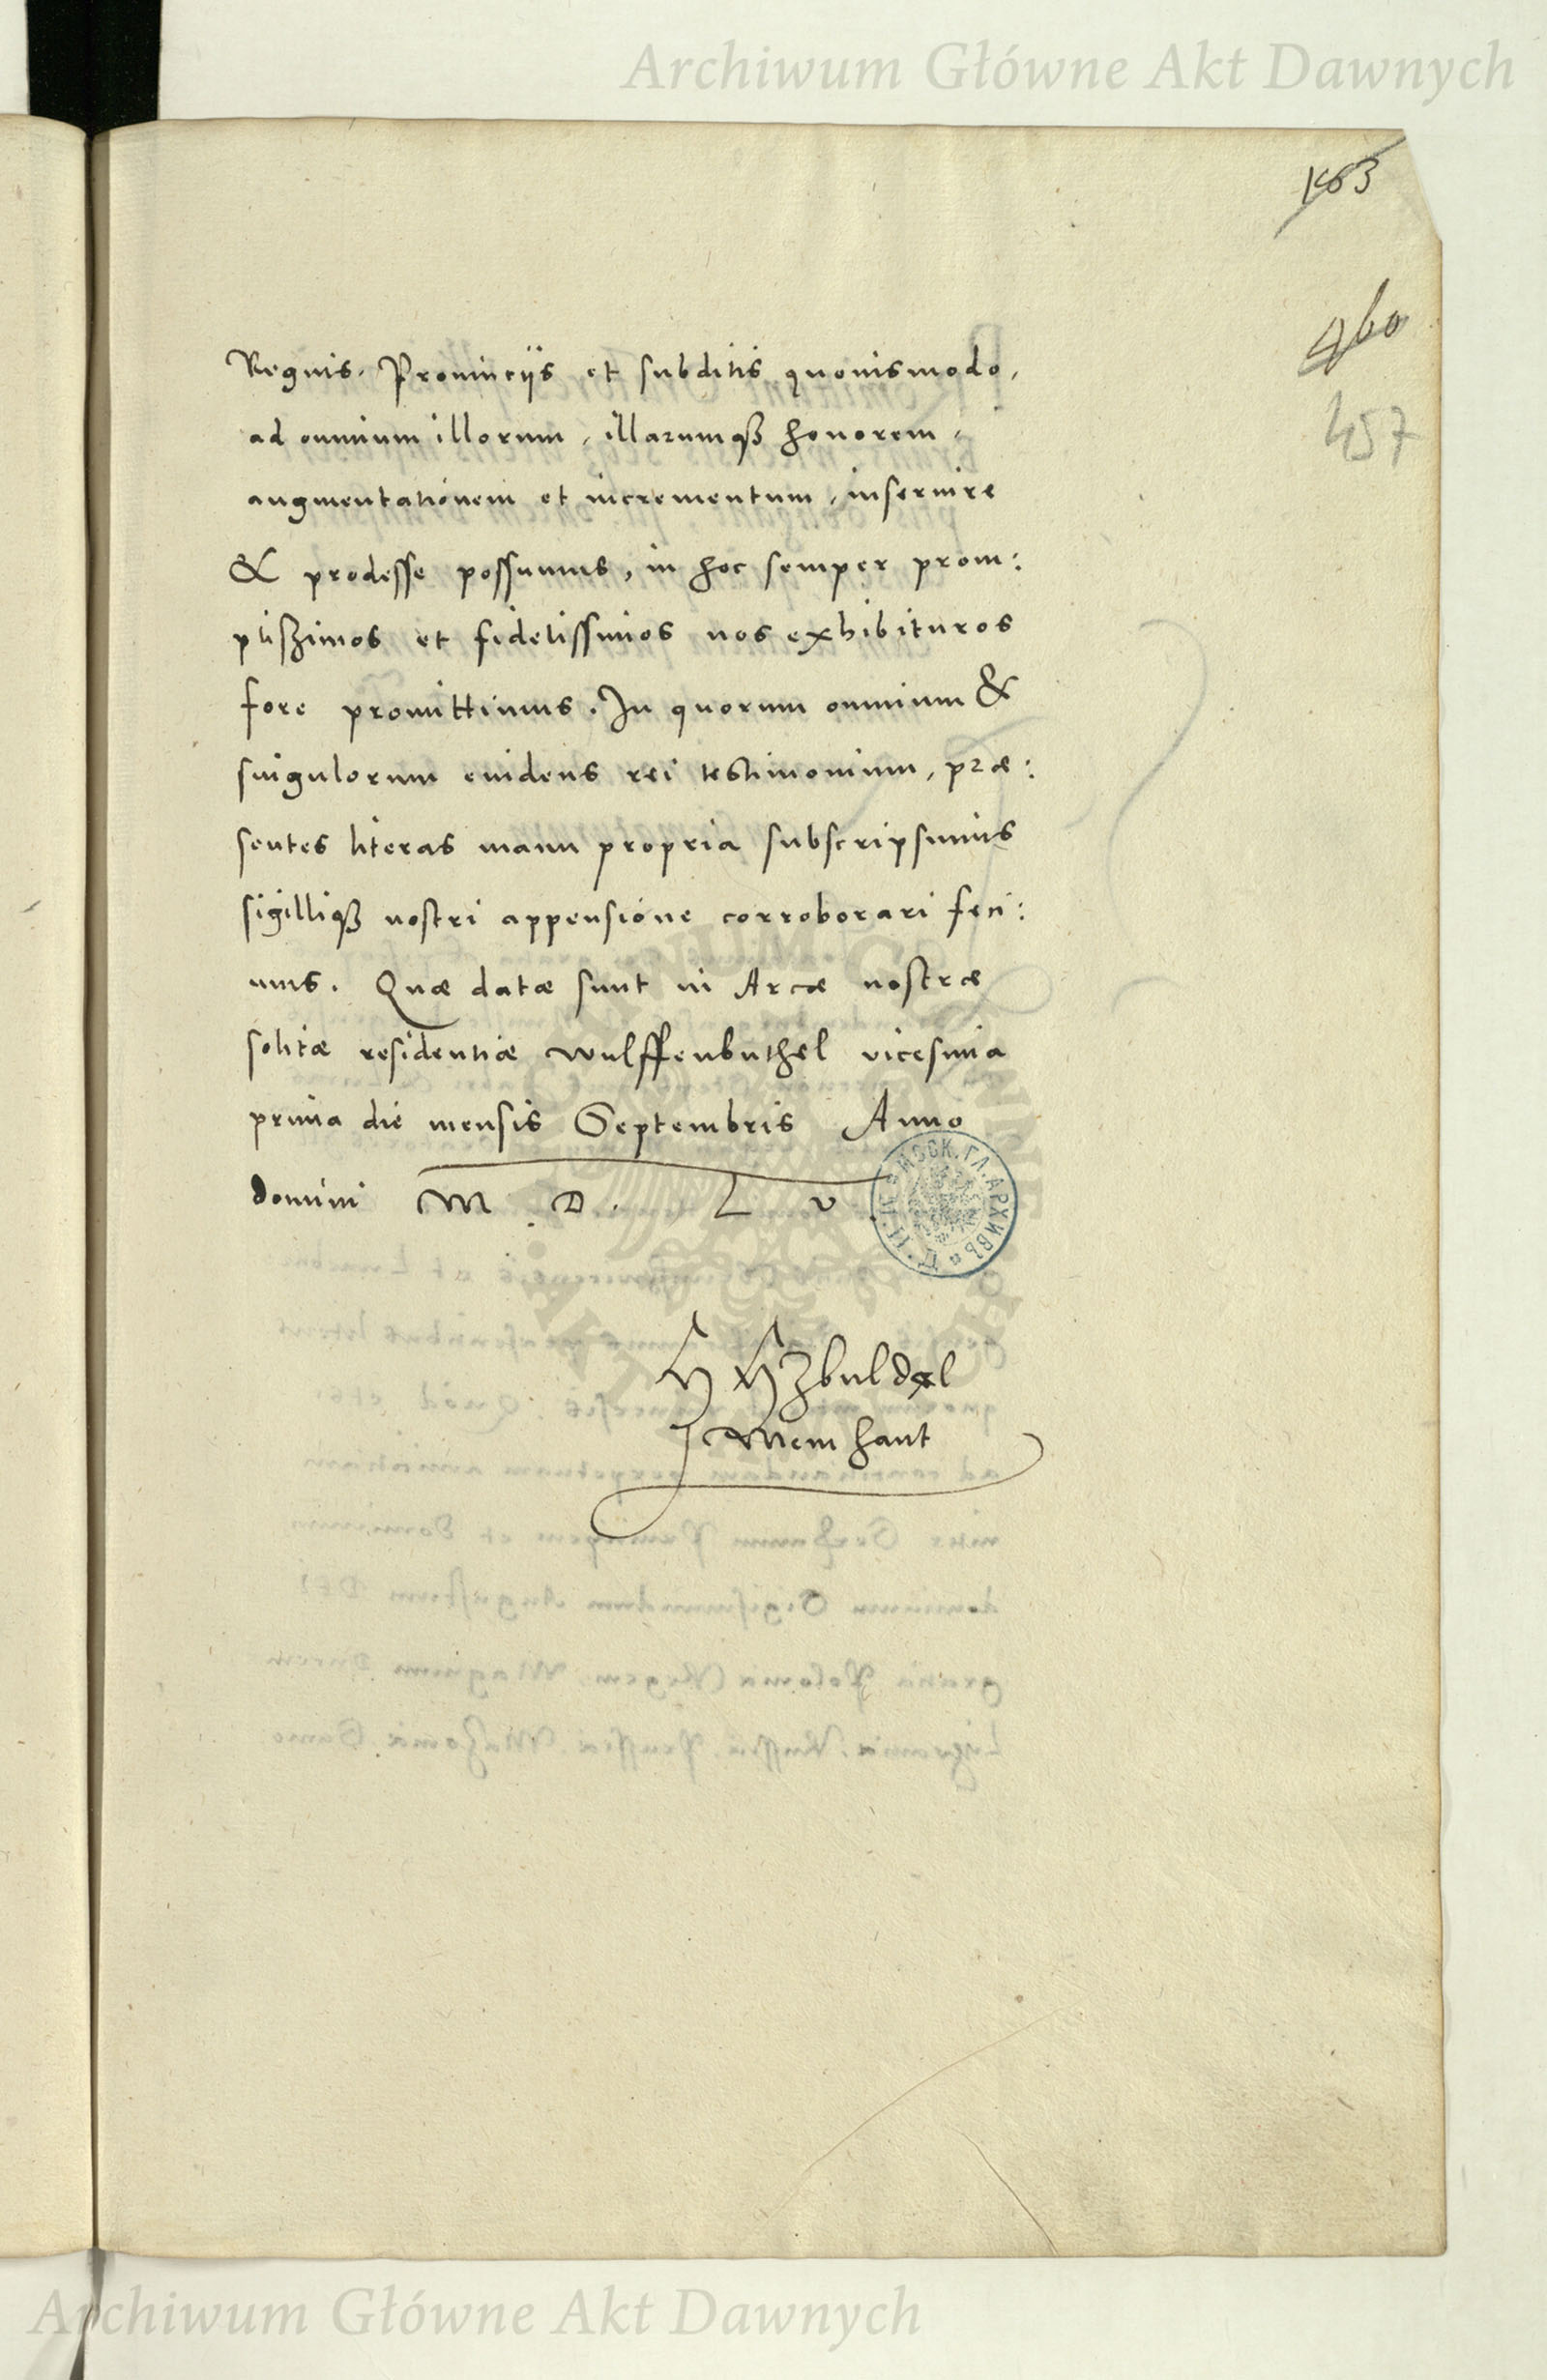 Archiwum Główne Akt Dawnych
163
460
457
Regnis. Provincijs et subditis quovismodo,
ad omnium illorum, illarumqß honorem,
augmentationem et incrementum, inservire
& prodesse possumus, in hoc semper prom:
ptißimos et fidelissimos nos exhibituros
fore promittimus. In quorum omnium &
singulorum evidens rei testimonium, præ:
sentes literas manu propria subscripsimus
sigilliqß nostri appensione corroborari feci:
mus. Quæ datæ sunt in Arce nostræ
solitæ residentiæ Wulffenbuthel vicesima
prima die mensis Septembris Anno
domini M. D. L v.
МОСК. ГЛ. АРХИВЪ
H H Z b u l d
Mein hant
Archiwum Główne Akt Dawnych